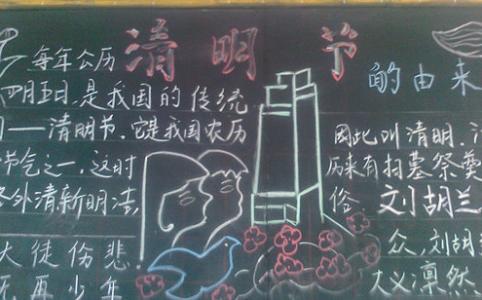 清明节
的由来
每年公历
四月五日,是我国的传统
——清明节,它是我国农历
节气之一,这时
外清新明洁,
大徒伤悲
再少年
因此叫清明,
历来有扫墓祭奠
俗 刘胡兰
众,刘胡
大义凛然